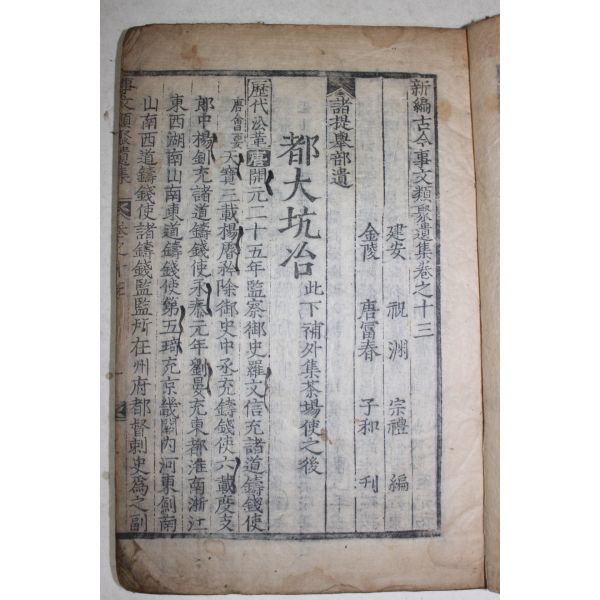 新編古今事文類聚遺集卷之十三
建安 祝淵 宗禮 編
金陵 唐冨春 子和 刋
諸提舉部遺
都大坑冶 此下補外集茶場使之後
歷代沿革 唐 開元二十五年監察御史羅文信充諸道鑄錢使
唐會要 天寶三載楊慎矜除御史中丞充鑄錢使六載度支
郎中楊釗充諸道鑄錢使永泰元年劉晏充東都淮南浙江
東西湖南山南東道鑄錢使第五琦充京畿關內河東劍南
山南西道鑄錢使諸鑄錢監監所在州府都督刺史爲之副
事文類聚遺集 卷之十三